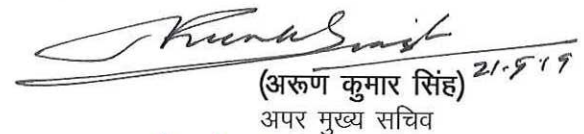 (अरूण कुमार सिंह) 21.9.19
अपर मुख्य सचिव